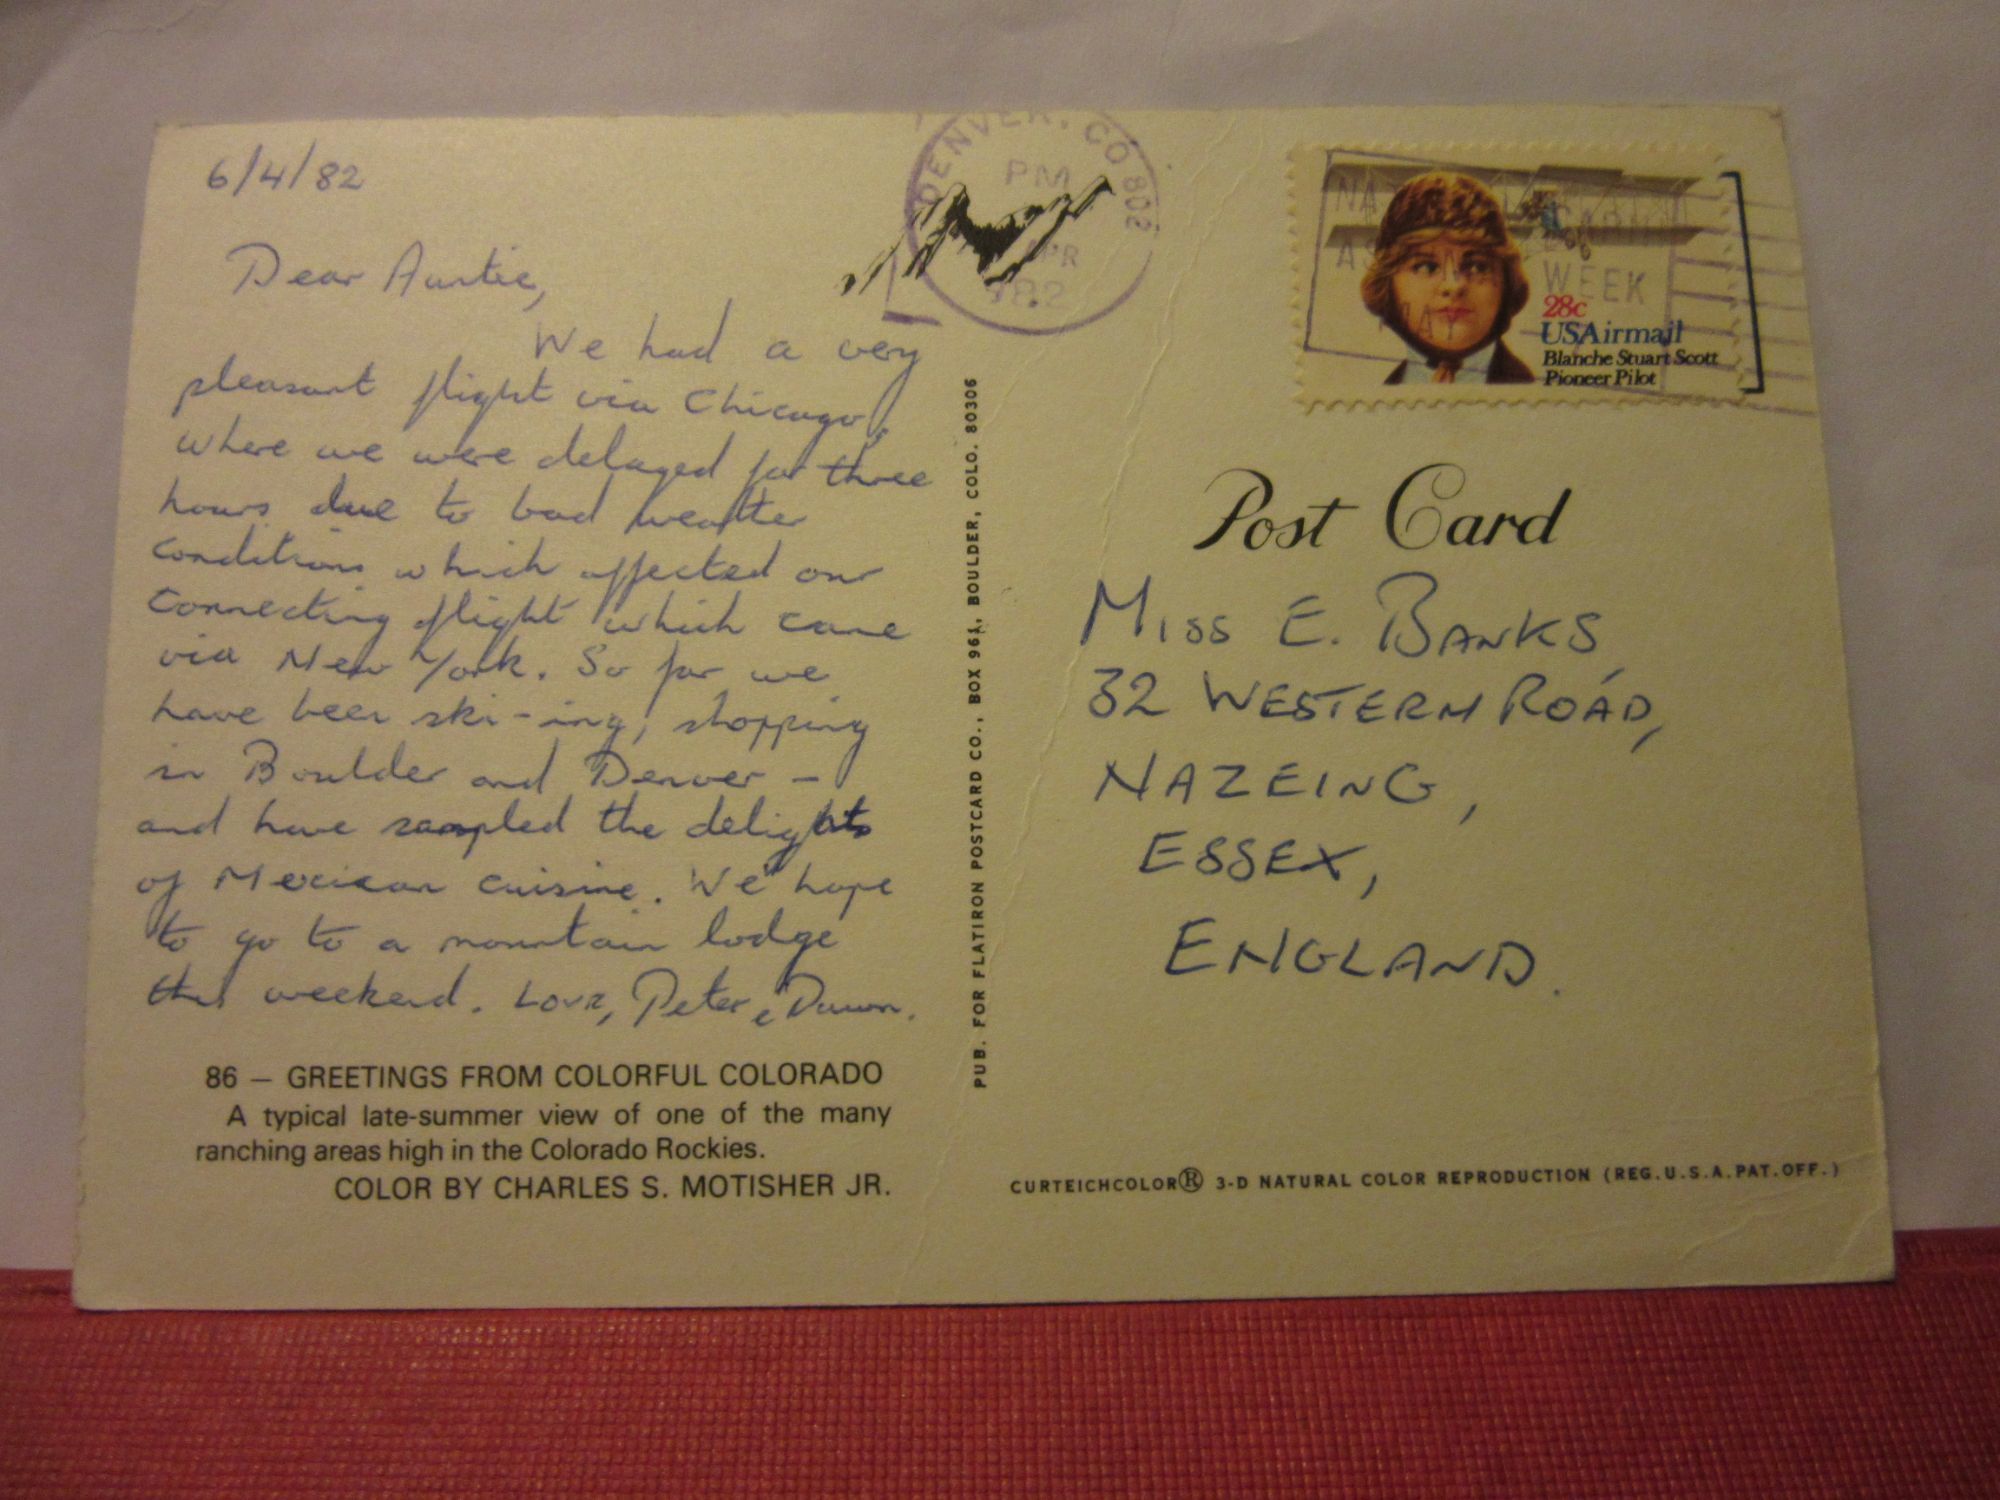 6/4/82
Dear Auntie,
We had a very
pleasant flight via Chicago,
where we were delayed for three
hours due to bad weather
conditions which affected our
connecting flight which came
via New York. So far we
have been ski-ing, shopping
in Boulder and Denver –
and have sampled the delights
of Mexican cuisine. We hope
to go to a mountain lodge
this weekend. Love, Peter & Dawn.
86 – GREETINGS FROM COLORFUL COLORADO
A typical late-summer view of one of the many
ranching areas high in the Colorado Rockies.
COLOR BY CHARLES S. MOTISHER JR.
PUB. FOR FLATIRON POSTCARD CO., BOX 961, BOULDER, COLO. 80306
DENVER, CO 802
PM
APR
1982
WEEK
MAY
28c
USAirmail
Blanche Stuart Scott
Pioneer Pilot
Post Card
MISS E. BANKS
32 WESTERN ROAD,
NAZEING,
ESSEX,
ENGLAND.
CURTEICHCOLOR® 3-D NATURAL COLOR REPRODUCTION (REG.U.S.A.PAT.OFF.)